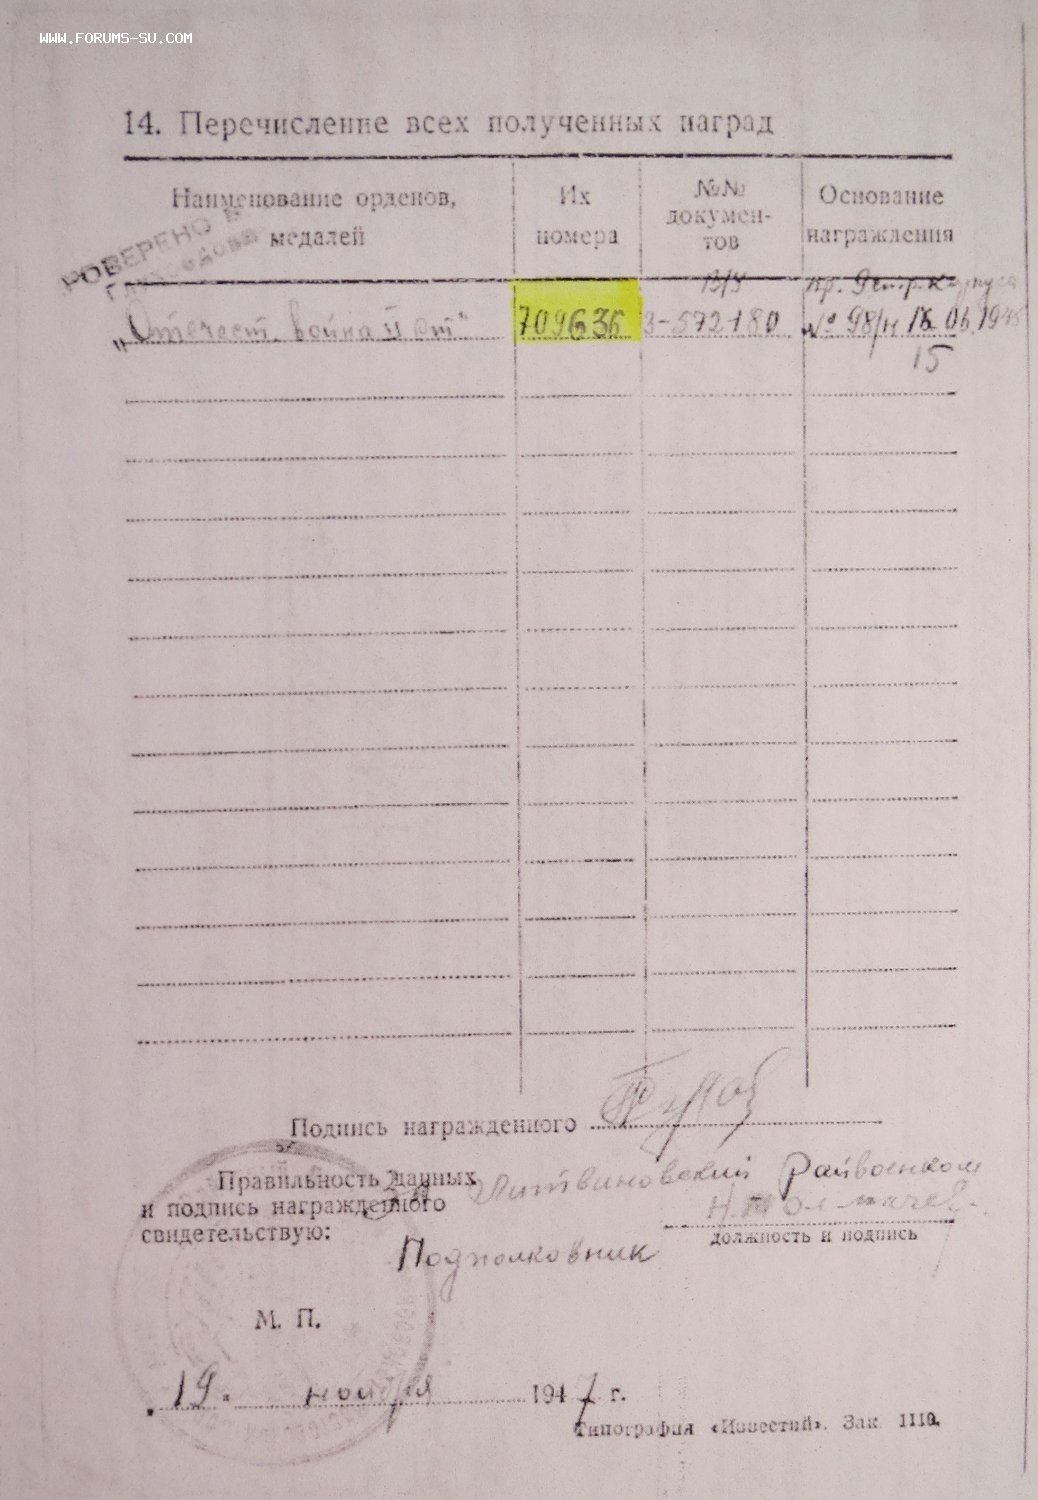 WWW.FORUMS-SU.COM
14. Перечисление всех полученных наград
Наименование орденов, медалей
Их номера
№№ документов
Основание награждения
РОВЕРЕНО
В/У
пр. 9 стр. корпуса
„Отечест. война II ст"
709636
З-572180
№ 98/н 16.06.1945
15
Подпись награжденного
Правильность данных
и подпись награжденного
свидетельствую:
Литвиновский Райвоенком
Н. Толмачев
должность и подпись
Подполковник
М. П.
19. ноября 1947 г.
Типография «Известий». Зак. 1110.